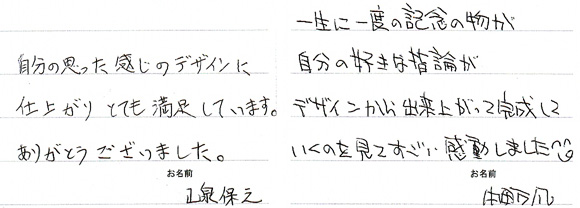 自分の思った感じのデザインに
仕上がり とても満足しています。
ありがとうございました。
お名前
正泉保元
一生に一度の記念の物が
自分の好きな指論が
デザインから出来上がって完成して
いくのを見てすごい感動しました
お名前